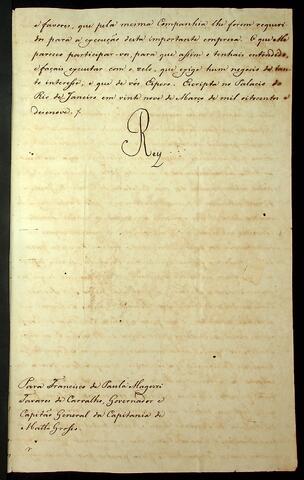 e favores, que pela mesma Companhia lhe forem requeri-
dos, para a execução desta importante empreza. O que Me
pareceo participar-vos, para que assim o tenhais entendido,
e façais executar com o zelo, que exige hum negocio de tan-
to interesse, e que de vós Espero. Escripta no Palacio do
Rio de Janeiro em vinte nove de Março de mil oitocentos e
dezenove. /.
Rey
Para Francisco de Paula Magessi
Tavares de Carvalho, Governador e
Capitão General da Capitania de
Matto Grosso.